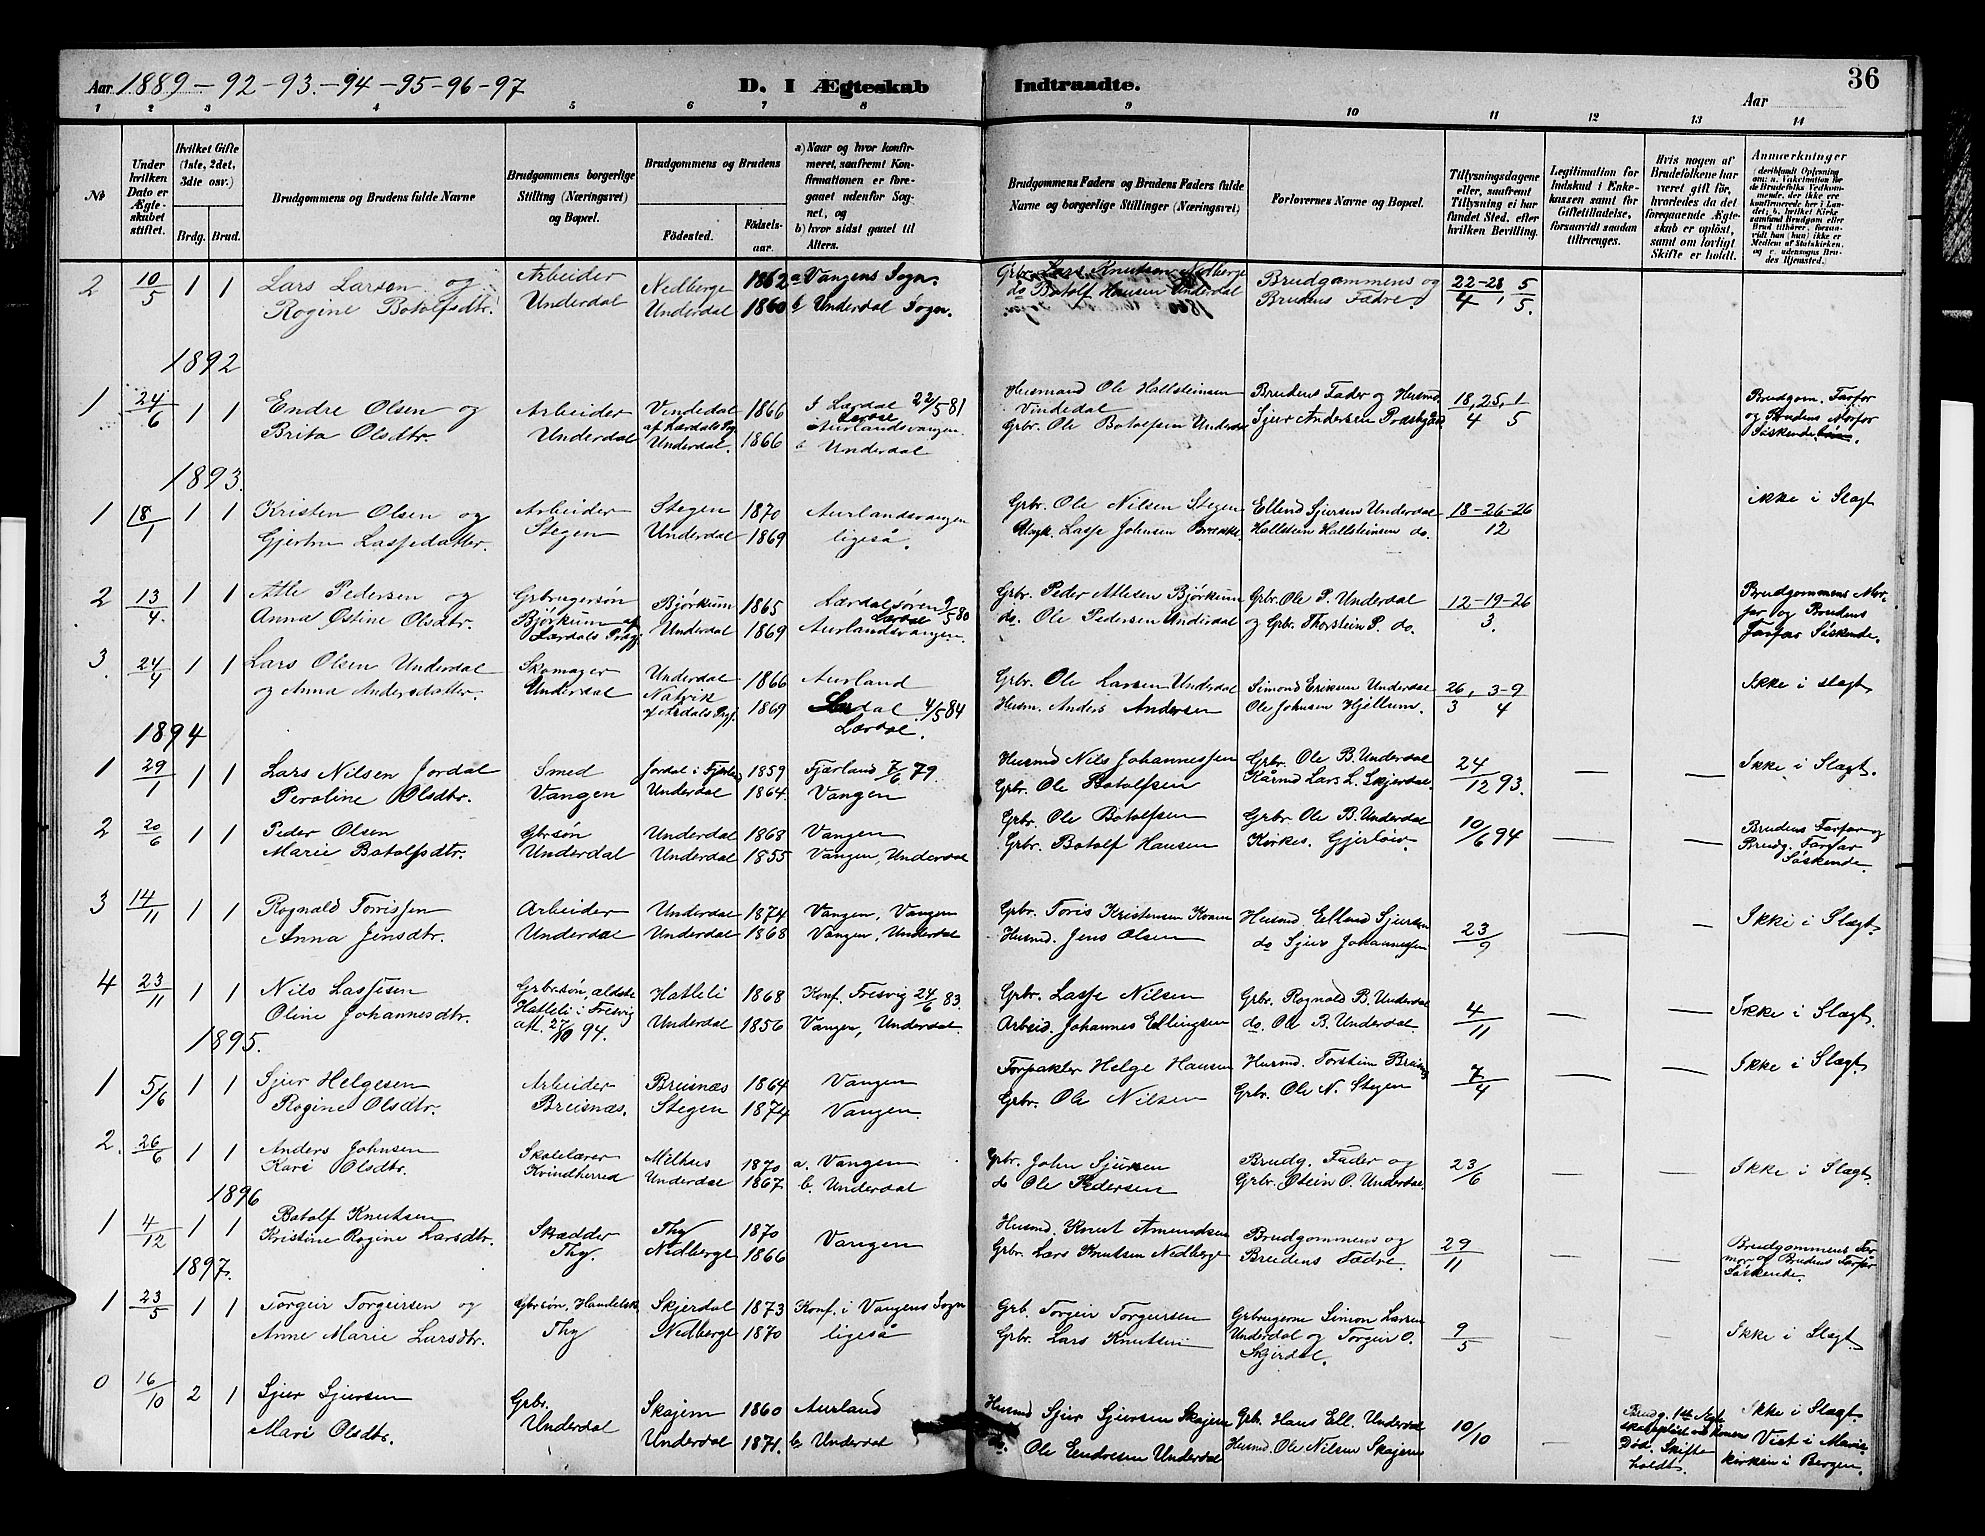 Aar 1889-92-93.-94-95-96-97 D. I Ægteskab Indtraadte. Aar 36
1 2 3 4 5 6 7 8 9 10 11 12 13 14
№
Under hvilken Dato er Ægteskabet stiftet.
Hvilket Gifte (1ste, 2det, 3die osv.)
Brdg. Brud.
Brudgommens og Brudens fulde Navne
Brudgommens borgerlige Stilling (Næringsvei) og Bopæl.
Brudgommens og Brudens
Födested. Födselsaar.
a) Naar og hvor konfirmeret, saafremt Konfirmationen er foregaaet udenfor Sognet, og
b) hvor sidst gaaet til Alters.
Brudgommens Faders og Brudens Faders fulde Navne og borgerlige Stillinger (Næringsvei)
Forlovernes Navne og Bopæl.
Tillysningsdagene eller, saafremt Tillysning ei har fundet Sted, efter hvilken Bevilling.
Legitimation for Indskud i Enkekassen samt for Giftetilladelse, forsaavidt saadan tiltrænges.
Hvis nogen af Brudefolkene har været gift för, hvorledes da det foregaaende Ægteskab er oplöst, samt om lovligt Skifte er holdt.
Anmærkninger (deriblandt Oplysning om: a. Vaksination for de Brudefolks Vedkommende, der ikke ere konfirmerede her i Landet; b. hvilket Kirkesamfund Brudgom eller Brud tilhörer, forsaavidt han (hun) ikke er Medlem af Statskirken, og c. udensogns Brudes Hjemsted.)
2 10/5 1 1 Lars Larsen og Arbeider Nedberge 1862 a Vangens Sogn. Grbr. Lars Knutsen Nedberge Brudgommens og 22-28 5
Rogine Botolfsdtr. Underdal Underdal 1860 b Underdal Sogn. do Botolf Hansen Underdal Brudens Fædre. 4 5.
1892
1 24/6 1 1 Endre Olsen og Arbeider Vindedal 1866 I Lærdal 22/5 81 Husmand Ole Hallsteinsen Brudens Fader og Husmd. 18, 25, 1 Brudgom. Farfor
Brita Olsdtr. Underdal af Lærdals Prg. Lærdal Vindedal Sjur Andersen 4 5 og Brudens Morfor
Underdal. 1866 i Aurlandsvangen. Grbr. Ole Botolfsen Underdal Söskende.
b Underdal
1893.
1 18/1 1 1 Kristen Olsen og Arbeider Stegen 1870 Aurlandsvangen Grbr. Ole Nilsen Stegen Ellend Sjursen Underdal 18-26-26 ikke i Slagt
Gjertru Lassedatter. Stegen Underdal 1869 ligeså. Lasse Johnsen Brække. Hallstein Hallsteinsen do. 12
2 13/4. 1 1 Atle Pedersen og Grbrugersøn Bjørkum 1865 Lærdalsøren 9/5 80 Grbr. Peder Atlesen Bjørkum Grbr. Ole P. Underdal 12-19-26 Brudgommens Mor-
Anna Østine Olsdtr. Bjørkum af Lærdal for og Brudens
Lærdals Prg. Underdal 1869 Aurlandsvangen. do. Ole Pedersen Underdal og Grbr. Thorstein P. do. 3. Farfar Söskende.
3. 24/4 1 1 Lars Olsen Underdal Skomager Underdal 1866 Aurland Grbr. Ole Larsen Underdal Simond Eriksen Underdal 26, 3-9 Ikke i slagt
og Anna Andersdatter. Underdal Natvik 1869 4/5 84 Husm. Anders Andersen Ole Johnsen Hjöllum. 3 4
af Årdals Prg. Lærdal.
1894
1 29/1 1 1 Lars Nilsen Jordal Smed Jordal i Fjærland 1859 Fjærland 7/6 79. Husmd Nils Johannessen Grbr. Ole B. Underdal 24/12 93. — — Ikke i Slagt.
Peroline Olsdtr. Vangen Underdal 1864. Vangen Grbr. Ole Botolfsen Kårmd Lars L. Skjerdal.
2 20/6 1 1 Peder Olsen Gbrsøn Underdal 1868 Vangen Grbr. Ole Botolfsen Grbr Ole B. Underdal 10/6 94 — — Brudens Farfar og
Marie Botolfsdtr. Underdal Underdal 1855 Vangen, Underdal Grbr. Botolf Hansen Kirkes. Gjerløw. Brudg. Farfar
Söskende.
3 14/11 1 1 Rognald Torrissen Arbeider Underdal 1874 Vangen, Vangen Grbr. Toris Kristensen Kvam Husmd Ellend Sjursen 23/9 — — Ikke i Slagt
Anna Jensdtr. Underdal Underdal 1868 Vangen, Underdal Husmd. Jens Olsen do Sjur Johannessen
4 23/11 1 1 Nils Lassesen Grbr.søn, ældste Hatleli 1868 Konf. Fresvig 24/6 83. Grbr. Lasse Nilsen Grbr. Rognald B. Underdal 4/11 — — Ikke i Slagt.
Oline Johannesdtr. Hatleli i Fresvig Underdal 1856 Vangen, Underdal. Arbeid. Johannes Ellingsen do. Ole B. Underdal
att. 27/10 94.
1895.
1 5/6 1 1 Sjur Helgesen Arbeider Breisnæs 1864 Vangen Forpakter Helge Hansen Husmd. Torstein 7/4 — — Ikke i Slagt.
Rogine Olsdtr. Breisnæs. Stegen 1874 Vangen. Grbr. Ole Nilsen Grbr. Ole N. Stegen
2. 26/6 1 1 Anders Johnsen Skolelærer Milhus 1870 a. Vangen Grbr. John Sjursen Brudg. Fader og 23/6 — — Ikke i Slagt.
Kari Olsdtr. Kvindherred Underdal 1867. b. Underdal do Ole Pedersen Grbr. Østein O. Underdal.
1896
1 4/12 1 1 Botolf Knutsen Skrædder Thy 1870 Vangen Husmd. Knut Amundsen Brudgommens og 29/11 — — Brudgommens Far-
Kristine Rogine Larsdtr. Thy. Nedberge 1866 Grbr. Lars Knutsen Nedberge Brudens Fædre. mor og Brudens Farfar
Söskende.
1897.
1 23/5 1 1 Torgeir Torgeirsen og Gbrsøn, Handelsk. Skjerdal 1873 Konf. i Vangens Sogn Grb. Torgeir Torgeirsen Grbrugerne Simon Larsen 9/5 — Ikke i Slagt.
Anne Marie Larsdtr. Thy Nedberge 1870 ligeså Grbr. Lars Knutsen Underdal og Torgeir O.
Skjerdal.
0 16/10 2 1 Sjur Sjursen Grbr. Skajem 1860 Aurland Husmd Sjur Sjursen Skajem Grb. Hans Ell. Underdal 10/10 — Brudg. 1ste Ægte- Ikke i Slagt.
Mari Olsdtr. Underdal Underdal 1871. b. Underdal do. Ole Endresen Underdal Husmd. Ole Nilsen Skajem skab oplöst ved Konens Viet i Marie-
Död. Skifte kirken i Bergen.
holdt.